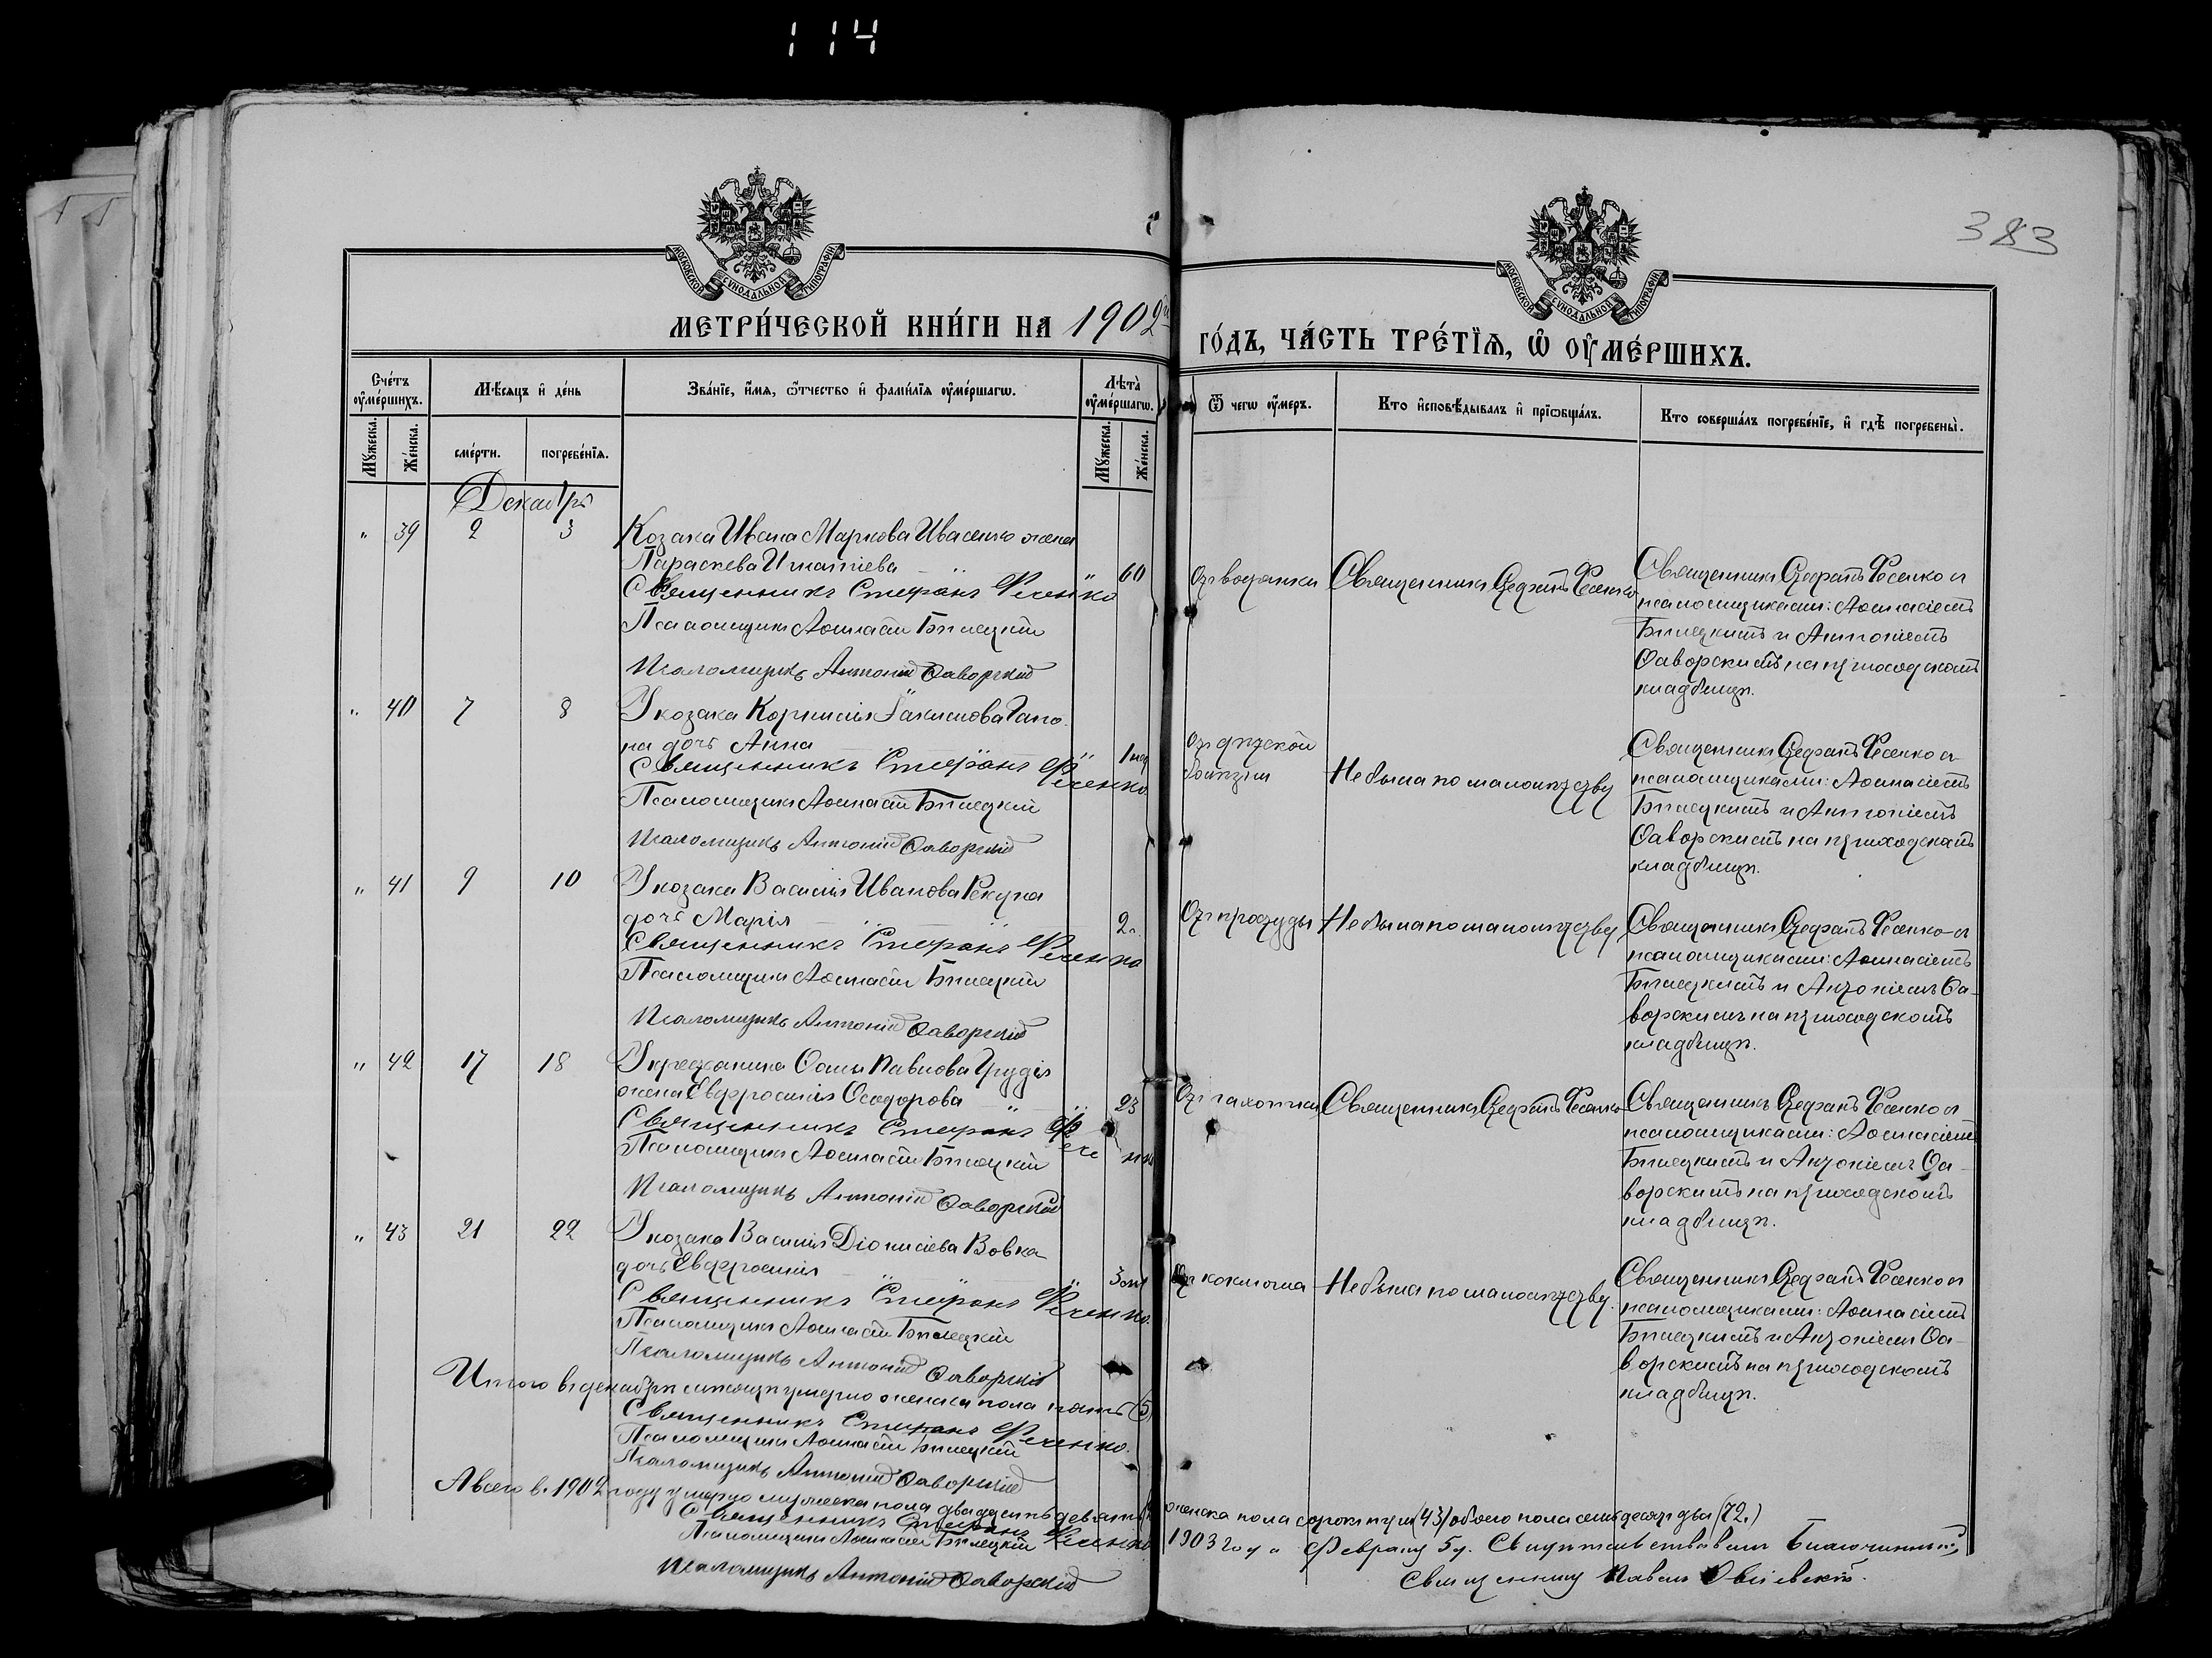 114
383
МОСКОВСКОЙ СѴНОДАЛЬНОЙ ТИПОГРАФІИ
МОСКОВСКОЙ СѴНОДАЛЬНОЙ ТИПОГРАФІИ
МЕТРИ́ЧЕСКОЙ КНИ́ГИ НА 1902й
ГО́ДЪ, ЧА́СТЬ ТРЕ́ТЇѦ, Ѡ҆ ОУ҆МЕ́РШИХЪ.
Сче́тъ оу҆ме́ршихъ.
Мѣ́сяцъ и҆ де́нь
Зва́нїе, и҆́мя, ѻ҆́тчество и҆ фами́лїя оу҆ме́ршагѡ.
Лѣта̀ оу҆ме́ршагѡ.
Ѿ чегѡ̀ оу҆́меръ.
Кто̀ и҆сповѣ́дывалъ и҆ прїѡбща́лъ.
Кто̀ соверша́лъ погребе́нїе, и҆ гдѣ̀ погребены̀.
Мꙋ́жеска.
Же́нска.
сме́рти.
погребе́нїя.
Мꙋ́жеска.
Же́нска.
Декабрь
" 39 2 3 Козака Ивана Маркова Ивасенко жена
Параскева Игнатіева " 60
Священникъ Стефанъ Фесенко
Псаломщикъ Аѳанасій Билецкій
Псаломщикъ Антоній Яворскій
Отъ водянки
Священникъ Стефанъ Фесенко
Священникъ Стефанъ Фесенко съ
псаломщиками: Аѳанасіемъ
Билецкимъ и Антоніемъ
Яворскимъ на приходскомъ
кладбищѣ.
" 40 7 8 У козака Корнилія Гапо-
на дочь Анна " 1
Священникъ Стефанъ Фесенко
Псаломщикъ Аѳанасій Билецкій
Псаломщикъ Антоній Яворскій
Отъ дѣтской
болѣзни
Не была по малолѣтству
Священникъ Стефанъ Фесенко съ
псаломщиками: Аѳанасіемъ
Билецкимъ и Антоніемъ
Яворскимъ на приходскомъ
кладбищѣ.
" 41 9 10 У козака Василія Иванова Рекуна
дочь Марія " 2
Священникъ Стефанъ Фесенко
Псаломщикъ Аѳанасій Билецкій
Псаломщикъ Антоній Яворскій
Отъ простуды
Не была по малолѣтству
Священникъ Стефанъ Фесенко съ
псаломщиками: Аѳанасіемъ
Билецкимъ и Антоніемъ Яв-
ворскимъ на приходскомъ
кладбищѣ.
" 42 17 18 У крестьянина Павлова
жена Евфросинія Ѳеодорова " 23
Священникъ Стефанъ Фесенко
Псаломщикъ Аѳанасій Билецкій
Псаломщикъ Антоній Яворскій
Отъ чахотки
Священникъ Стефанъ Фесенко
Священникъ Стефанъ Фесенко съ
псаломщиками: Аѳанасіемъ
Билецкимъ и Антоніемъ Я-
ворскимъ на приходскомъ
кладбищѣ.
" 43 21 22 У козака Василія Діонисіева Вовка
дочь Евфросинія " 3 м
Священникъ Стефанъ Фесенко
Псаломщикъ Аѳанасій Билецкій
Псаломщикъ Антоній Яворскій
Отъ коклюша
Не была по малолѣтству.
Священникъ Стефанъ Фесенко съ
псаломщиками: Аѳанасіемъ
Билецкимъ и Антоніемъ Я-
ворскимъ на приходскомъ
кладбищѣ.
Итого въ декабрѣ мѣсяцѣ умерло женска пола пять (5)
Священникъ Стефанъ Фесенко.
Псаломщикъ Аѳанасій Билецкій
Псаломщикъ Антоній Яворскій
А всего въ 1902 году умерло мужеска пола двадцать девять женска пола сорокъ три (43) обоего пола семьдесятъ два (72.)
Священникъ Стефанъ Фесенко
Псаломщикъ Аѳанасій Билецкій
Псаломщикъ Антоній Яворскій
1903 году Февраля 5 д. Свидѣтельствовалъ Благочинный,
Священникъ Павелъ